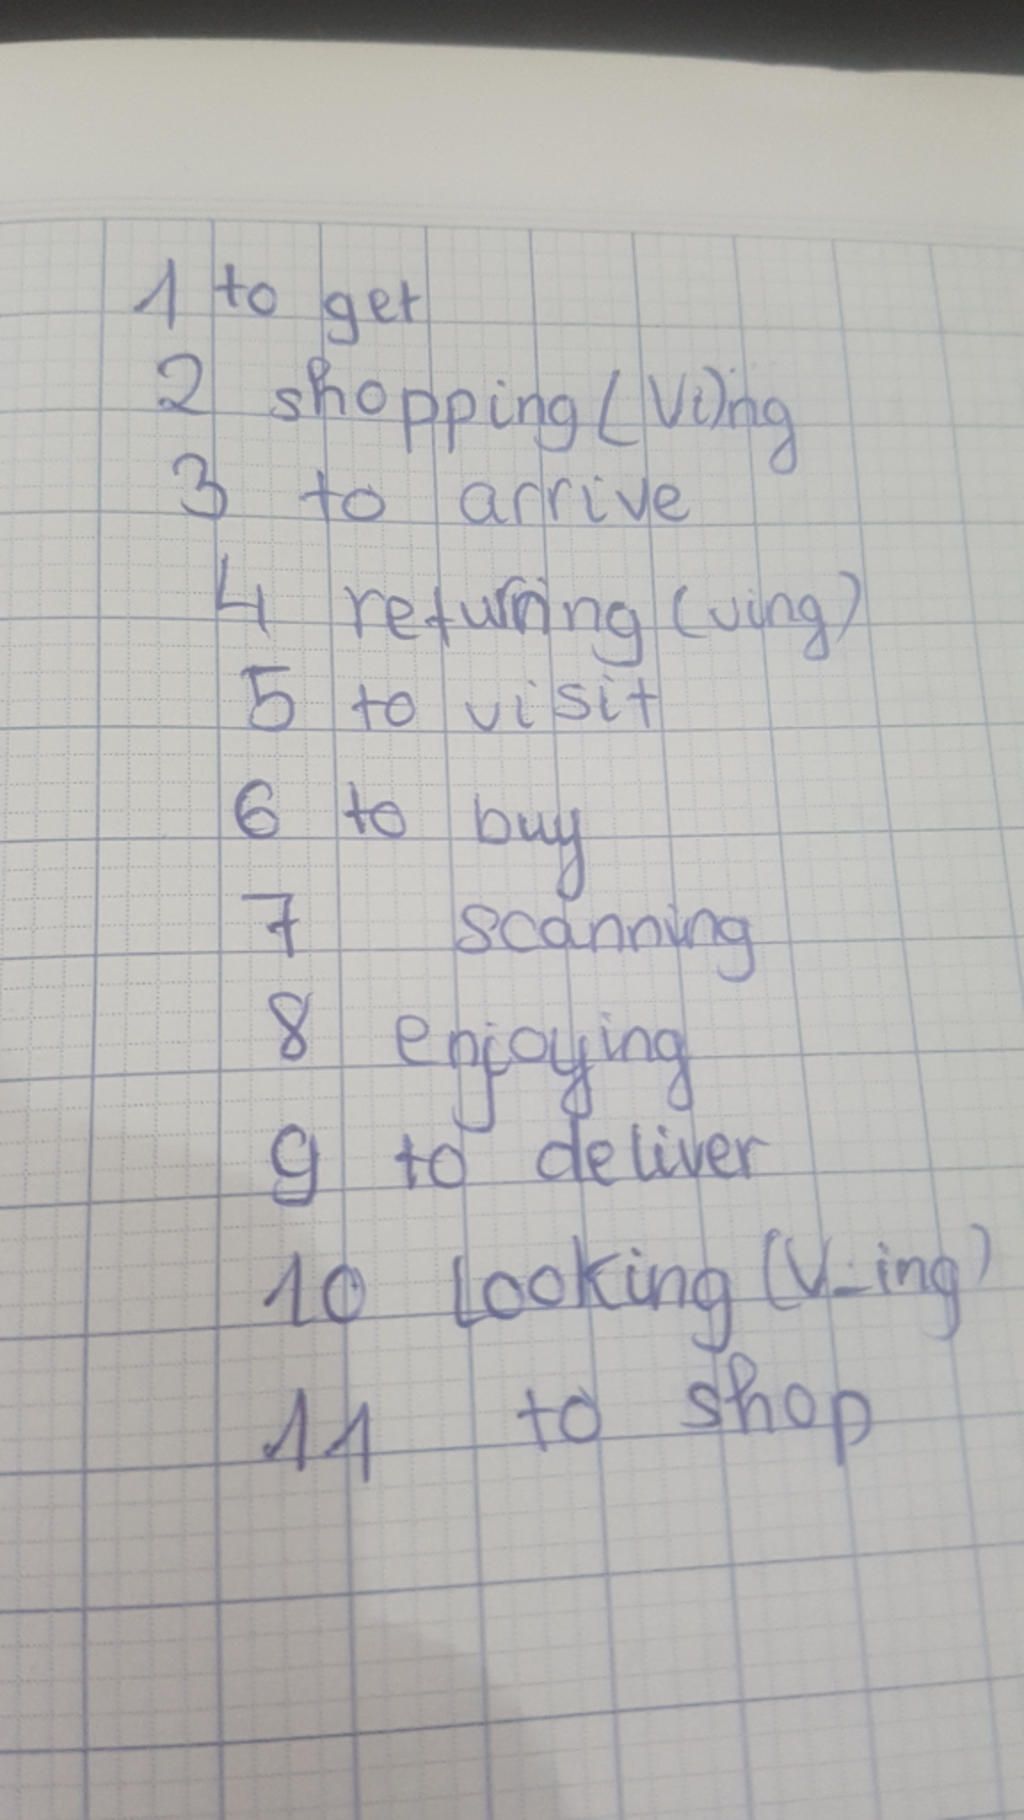 1 to get
2 shopping (Vi)ng
3 to arrive
4 returning (ving)
5 to visit
6 to buy
7 scanning
8 enjoying
9 to deliver
10 Looking (V-ing)
11 to shop